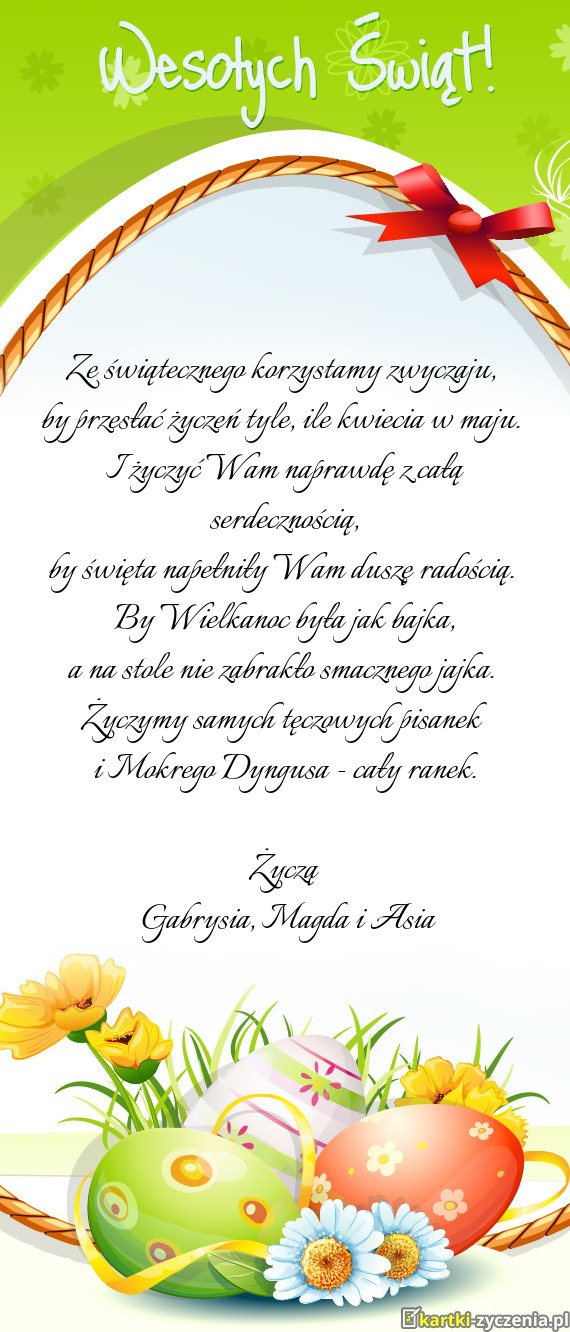 Wesołych Świąt!
Ze świątecznego korzystamy zwyczaju,
by przesłać życzeń tyle, ile kwiecia w maju.
I życzyć Wam naprawdę z całą
serdecznością,
by święta napełniły Wam duszę radością.
By Wielkanoc była jak bajka,
a na stole nie zabrakło smacznego jajka.
Życzymy samych tęczowych pisanek
i Mokrego Dyngusa - cały ranek.
Życzą
Gabrysia, Magda i Asia
kartki-zyczenia.pl